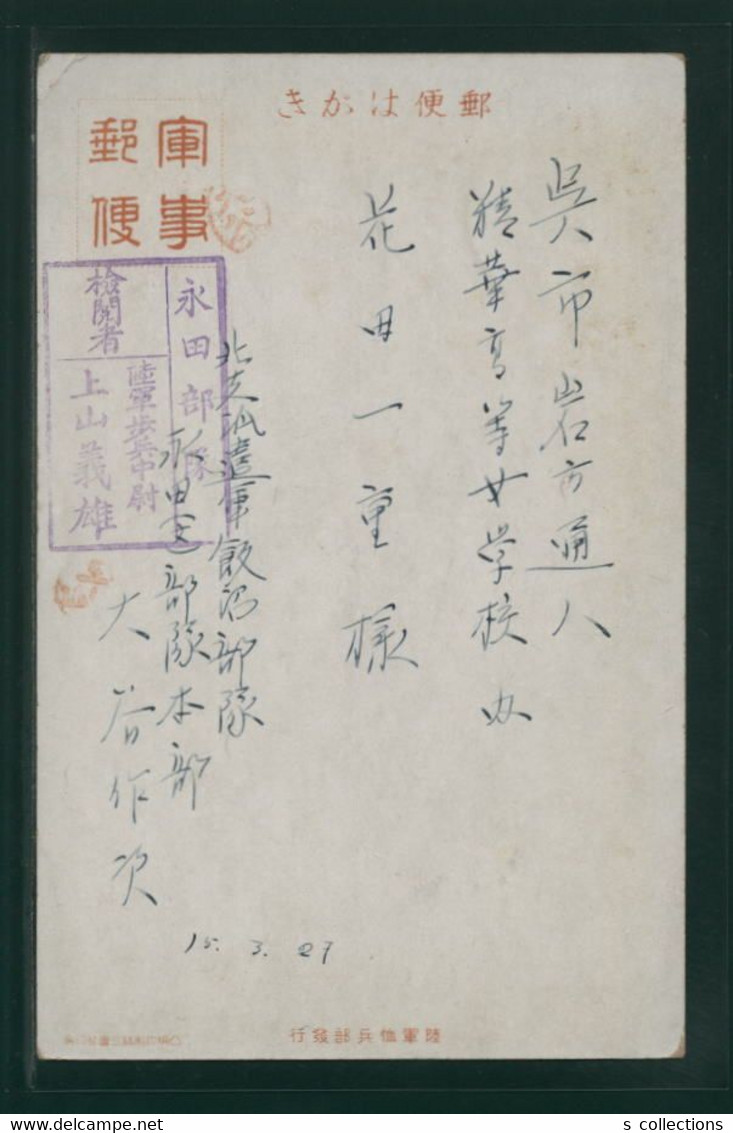 きかは便郵
軍事
郵便
呉市岩方通八
精華高等女学校内
花田一重様
北支派遣軍飯沼部隊
永田部隊本部
大谷作次
永田部隊
検閲者
陸軍歩兵中尉
上山義雄
15. 3. 27
行發部兵恤軍陸
s collections